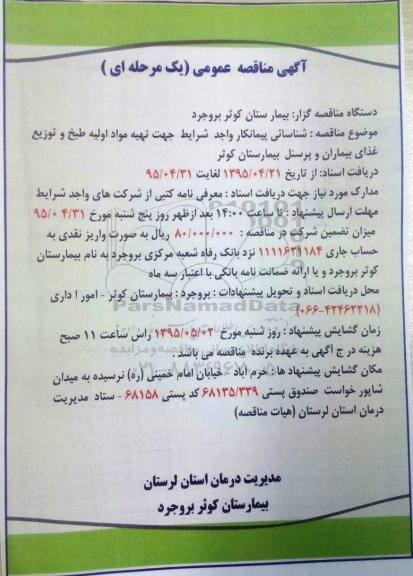 آگهی مناقصه عمومی (یک مرحله ای )
دستگاه مناقصه گزار: بیمار ستان کوثر بروجرد
موضوع مناقصه : شناسائی پیمانکار واجد شرایط جهت تهیه مواد اولیه طبخ و توزیع
غذای بیماران و پرسنل بیمارستان کوثر
دریافت اسناد: از تاریخ ۱۳۹۵/۰۴/۲۱ لغایت ۹۵/۰۴/۳۱
مدارک مورد نیاز جهت دریافت اسناد : معرفی نامه کتبی از شرکت های واجد شرایط
مهلت ارسال پیشنهاد : تا ساعت ۱۴:۰۰ بعد ازظهر روز پنج شنبه مورخ ۹۵/۰۴/۳۱
میزان تضمین شرکت در مناقصه : ۸۰/۰۰۰/۰۰۰ ریال به صورت واریز نقدی به
حساب جاری ۱۱۱۱۶۳۱۱۸۴ نزد بانک رفاه شعبه مرکزی بروجرد به نام بیمارستان
کوثر بروجرد و یا ارائه ضمانت نامه بانکی با اعتبار سه ماه
محل دریافت اسناد و تحویل پیشنهادات : بروجرد : بیمارستان کوثر - امور ا داری
(۰۶۶-۴۲۴۶۲۲۱۸)
ParsNamadData
زمان گشایش پیشنهاد : روز شنبه مورخ ۱۳۹۵/۰۵/۰۲ راس ساعت ۱۱ صبح
هزینه در ج آگهی به عهده برنده مناقصه می باشد .
مکان گشایش پیشنهاد ها : خرم آباد - خیابان امام خمینی (ره) نرسیده به میدان
شاپور خواست صندوق پستی ۶۸۱۳۵/۳۳۹ کد پستی ۶۸۱۵۸ - ستاد مدیریت
درمان استان لرستان (هیات مناقصه)
مدیریت درمان استان لرستان
بیمارستان کوثر بروجرد